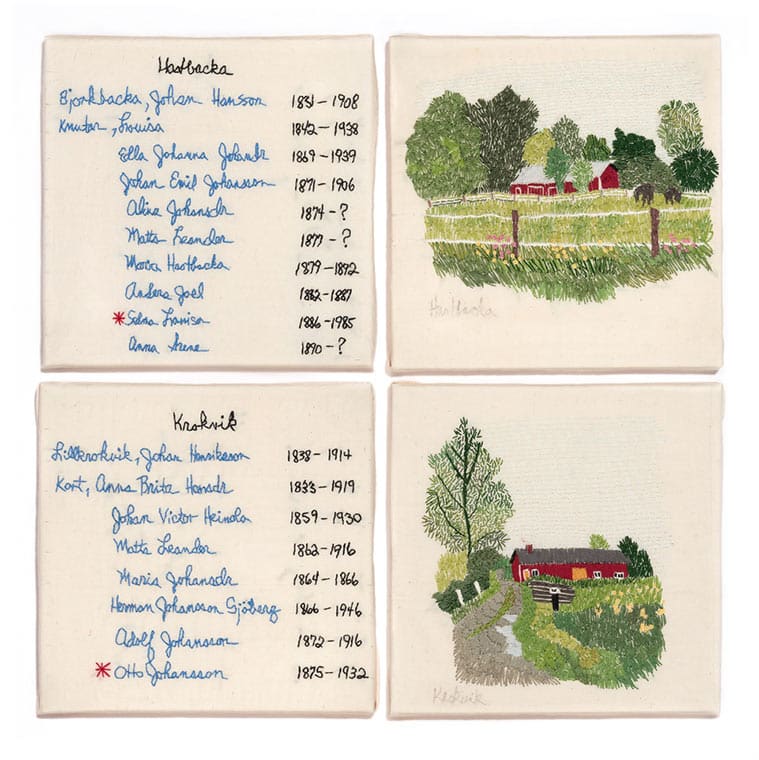 Hastbacka
Bjorkbacka, Johan Hansson 1831 - 1908
Knutar, Lovisa 1842 - 1938
Ella Johanna Johandr 1869 - 1939
Johan Emil Johansson 1871 - 1906
Alina Johansdr 1874 - ?
Matts Leander 1877 - ?
Maria Hastbacka 1879 - 1892
Anders Joel 1882 - 1887
* Selma Lovisa 1886 - 1985
Anna Irene 1890 - ?
Hastbacka
Krokvik
Lillkrokvik, Johan Henriksson 1838 - 1914
Kort, Anna Brita Hansdr 1833 - 1919
Johan Victor Heinola 1859 - 1930
Matts Leander 1862 - 1916
Maria Johansdr 1864 - 1866
Herman Johansson Sjöberg 1866 - 1946
Adolf Johansson 1872 - 1916
* Otto Johansson 1875 - 1932
Krokvik